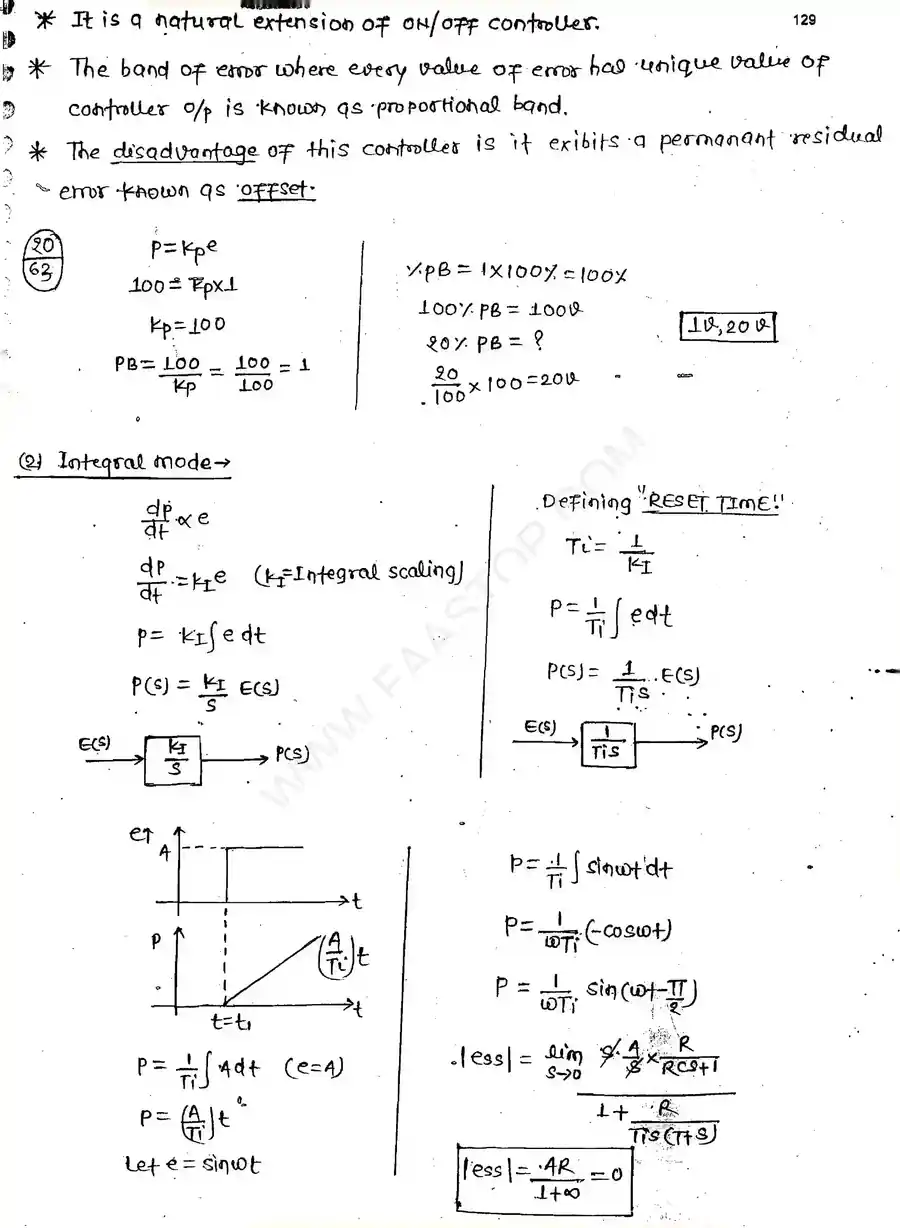 129
* It is a natural extension of ON/OFF controller.
* The band of error where every value of error has unique value of
controller o/p is known as proportional band.
* The disadvantage of this controller is it exibits a permanant residual
error known as offset.
20/63
P = Kpe
100 = Kp×1
Kp = 100
PB = 100/Kp = 100/100 = 1
% PB = 1×100% = 100%
100% PB = 100v
20% PB = ?
20/100 × 100 = 20v
1v, 20v
(2) Integral mode →
dp/dt ∝ e
dp/dt = KI e (KI = Integral scaling)
p = KI ∫ e dt
P(s) = KI/S E(s)
E(s) → KI/S → P(s)
Defining "RESET TIME"
Ti = 1/KI
P = 1/Ti ∫ edt
P(s) = 1/TiS . E(s)
E(s) → 1/TiS → P(s)
e↑
A
t
P
(A/Ti)t
t
t=t1
P = 1/Ti ∫ Adt (e=A)
P = (A/Ti)t
Let e = sinωt
P = 1/Ti ∫ sinωt dt
P = 1/ωTi (-cosωt)
P = 1/ωTi sin(ωt - π/2)
|ess| = lim S→0 S. A/S × R/RCS+1
1 + R/TiS(T+S)
|ess| = AR/1+∞ = 0
WWW.FAASTOP.COM